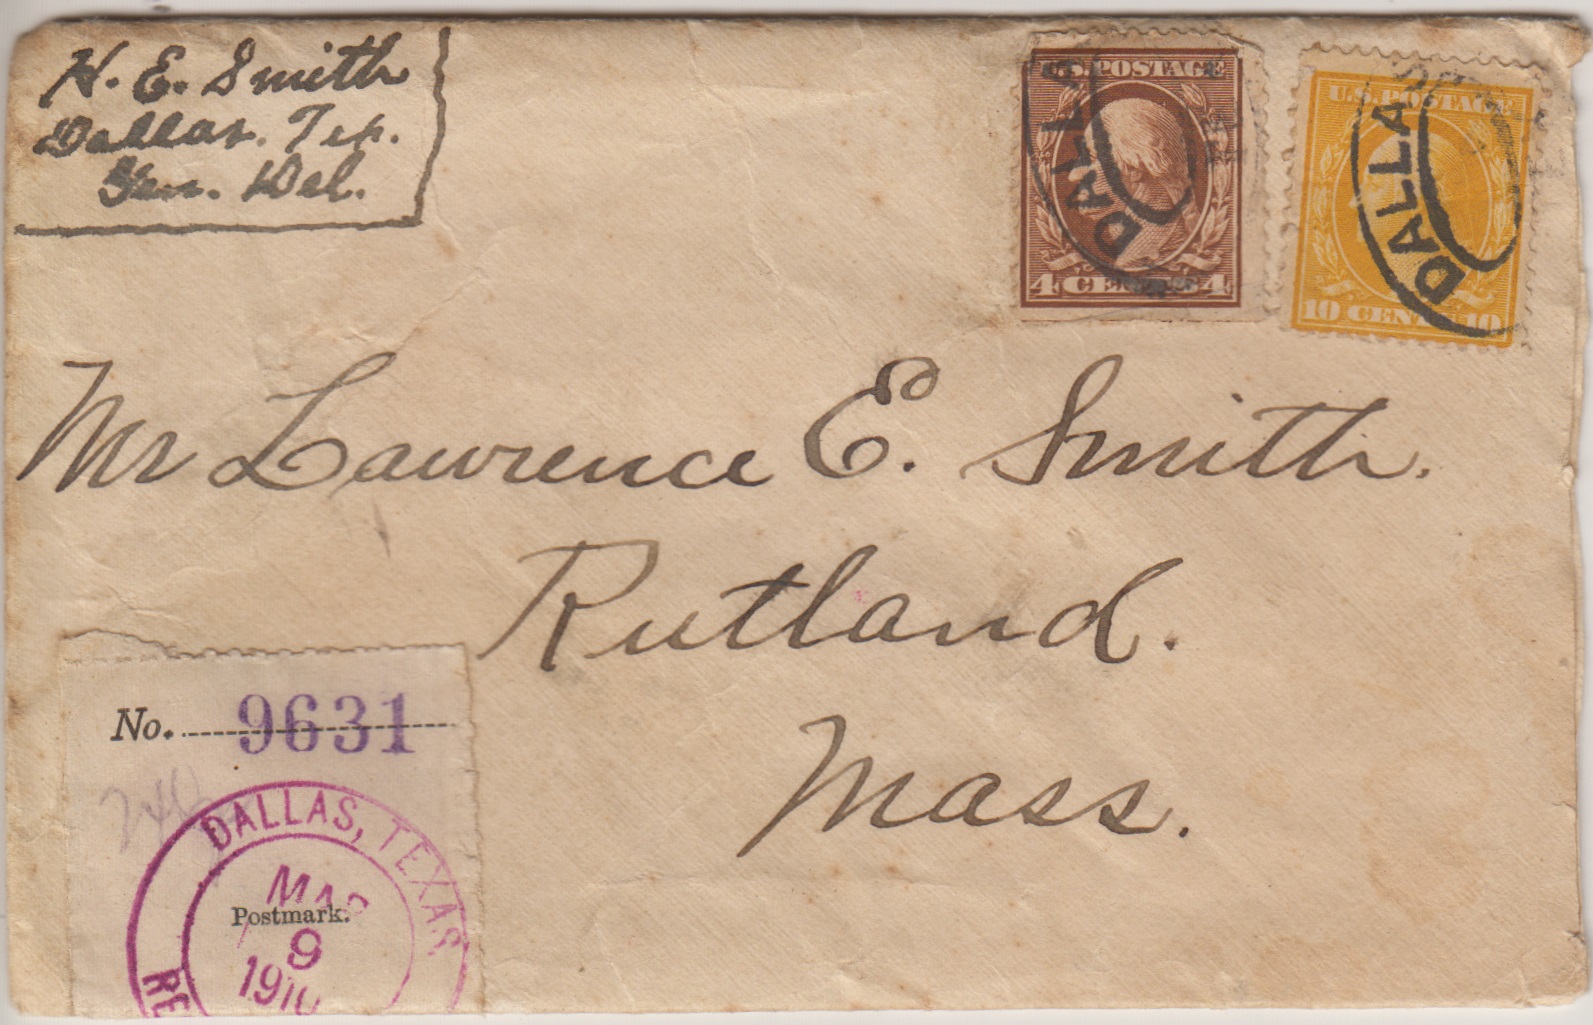 H. E. Smith
Dallas. Tex.
Gen. Del.
U.S. POSTAGE
4 CENTS 4
DALLAS
U.S. POSTAGE
10 CENTS 10
DALLAS
Mr Lawrence E. Smith.
Rutland.
Mass.
No. 9631
DALLAS, TEXAS.
MAR
Postmark.
9
1910
RE